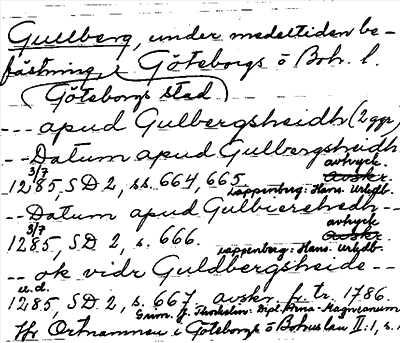 Gullberg, under medeltiden be-
fästning, Göteborgs o Boh. l.
(Göteborgs stad)
--- apud Gulbergsheidh (2 ggr)
-- Datum apud Gulbergsheidh
3/7 1285, SD 2, ss. 664, 665 avskr. avtryck
Lappenberg: Hans. Urkdb.
-- Datum apud Gulbiershedh --
3/7 1285, SD 2, s. 666. avskr. avtryck
Lappenberg: Hans. Urkdb.
-- ok vidr Guldbergsheide --
u.d. 1285, SD 2, s. 667 avskr. fr. tr. 1786.
Grim. J. Thorkelin: Dipl. Arna-Magnæanum
Jfr Ortnamnen i Göteborgs o Bohuslän II:1, s. 1